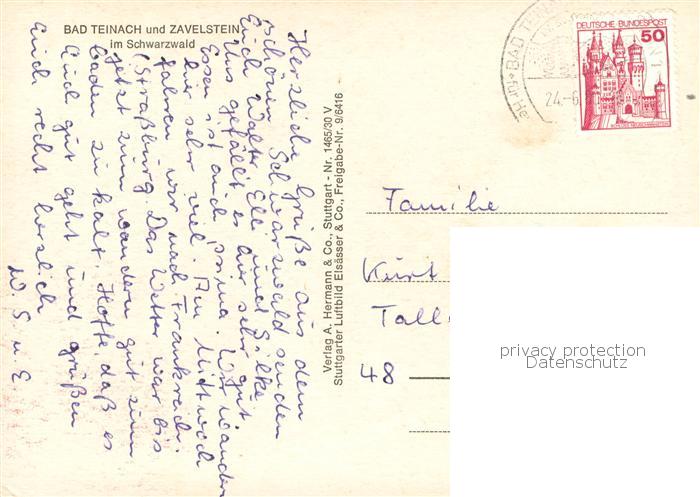 BAD TEINACH und ZAVELSTEIN
im Schwarzwald
Herzliche Grüße aus dem
schönen Schwarzwald senden
Euch Walter, Elli und Silke.
Uns gefällt es hier sehr gut.
Essen ist auch prima. Wir wandern
hier sehr viel. Am Mittwoch
fahren wir nach Frankreich.
(Straßburg. Das Wetter war bis
jetzt zum wandern gut zum
baden zu kalt. Hoffe, daß es
Euch gut geht und grüßen
Euch recht herzlich
W. S. u. E.
Verlag A. Hermann & Co., Stuttgart - Nr. 1465/30 V
Stuttgarter Luftbild Elsässer & Co., Freigabe-Nr. 9/6416
BAD TEIN
24.-6.
DEUTSCHE BUNDESPOST
50
SCHLOSS NEUSCHWANSTEIN
Familie
Kurt
Tall
48
privacy protection
Datenschutz